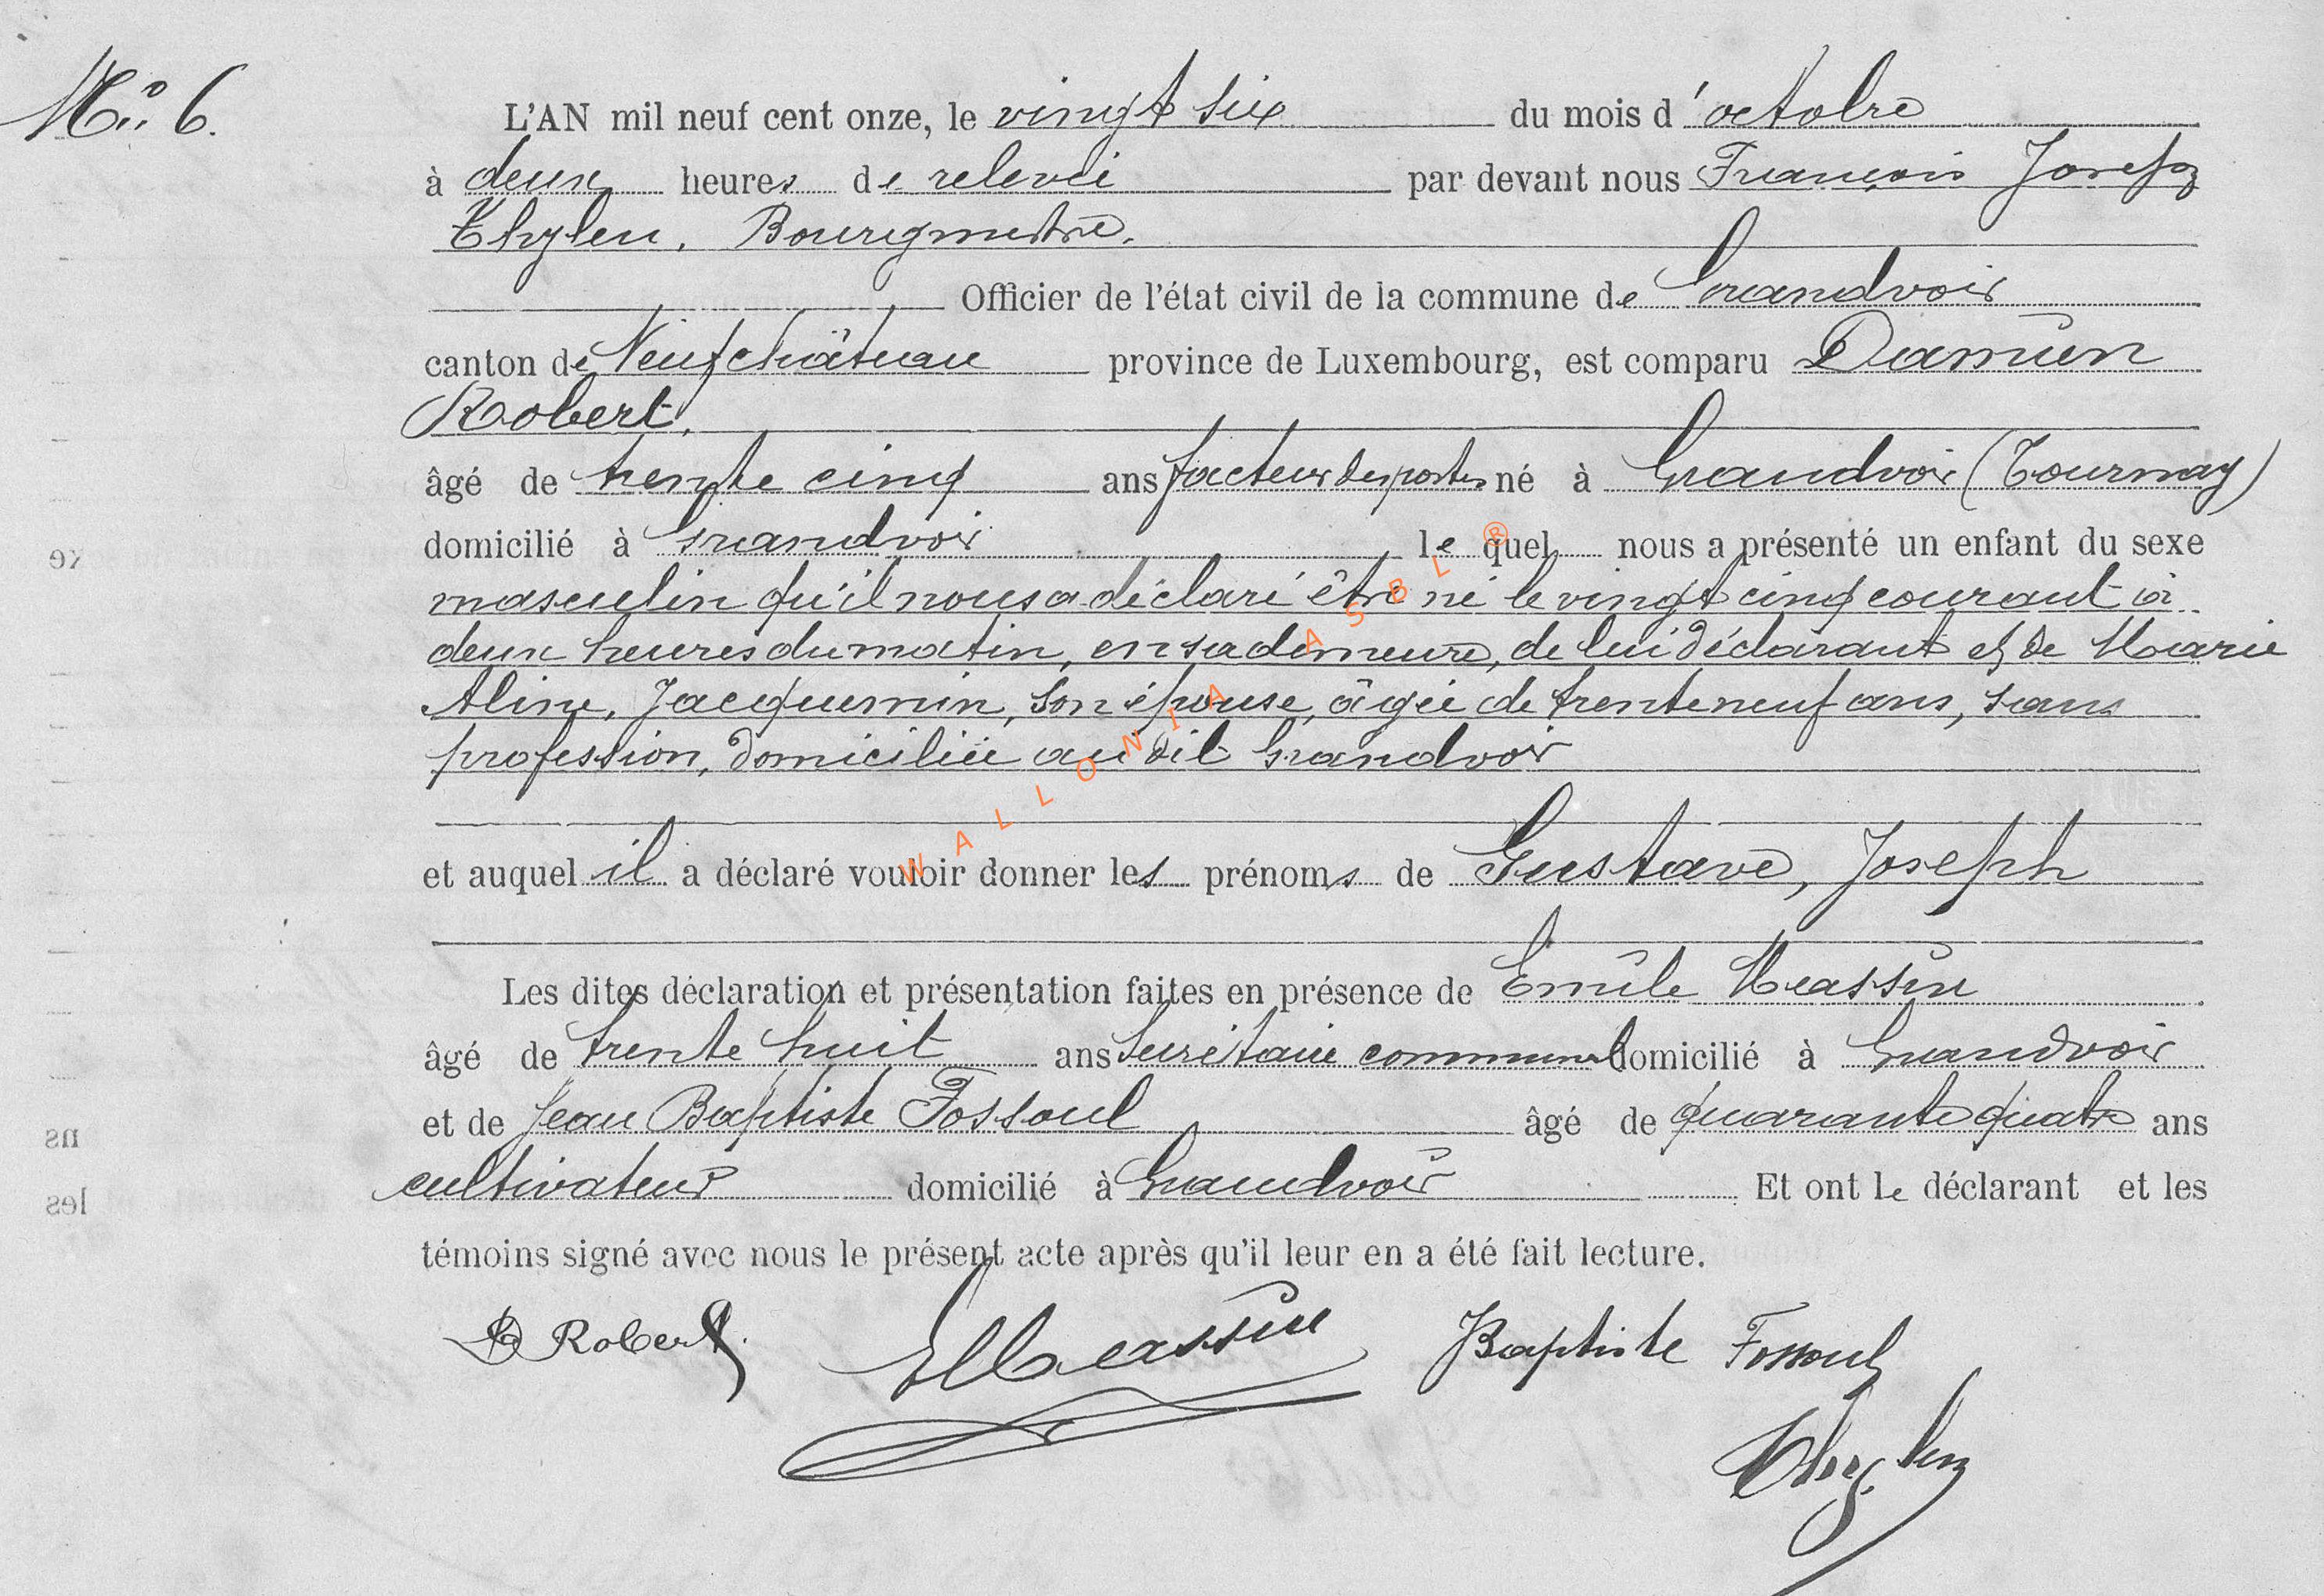 N° 6.
L'AN mil neuf cent onze, le vingt six du mois d'octobre
à deux heures de relevée par devant nous François Joseph
Thylen, Bourgmestre.
Officier de l'état civil de la commune de Grandvoir
canton de Neufchâteau province de Luxembourg, est comparu Damien
Robert,
âgé de trente cinq ans facteur des postes né à Grandvoir (Tournay)
domicilié à Grandvoir lequel nous a présenté un enfant du sexe
masculin qu'il nous a déclaré être né le vingt cinq courant à
deux heures du matin, en sa demeure, de lui déclarant et de Marie
Aline, Jacquemin, son épouse, âgée de trente neuf ans, sans
profession, domiciliée au dit Grandvoir
et auquel il a déclaré vouloir donner les prénoms de Gustave, Joseph
Les dites déclaration et présentation faites en présence de Emile Massin
âgé de trente huit ans Secrétaire communal domicilié à Grandvoir
et de Jean Baptiste Fossoul âgé de quarante quatre ans
cultivateur domicilié à Grandvoir Et ont le déclarant et les
témoins signé avec nous le présent acte après qu'il leur en a été fait lecture.
D Robert. EMassin Baptiste Fossoul
Thylen
WALLONIA ASBL ®